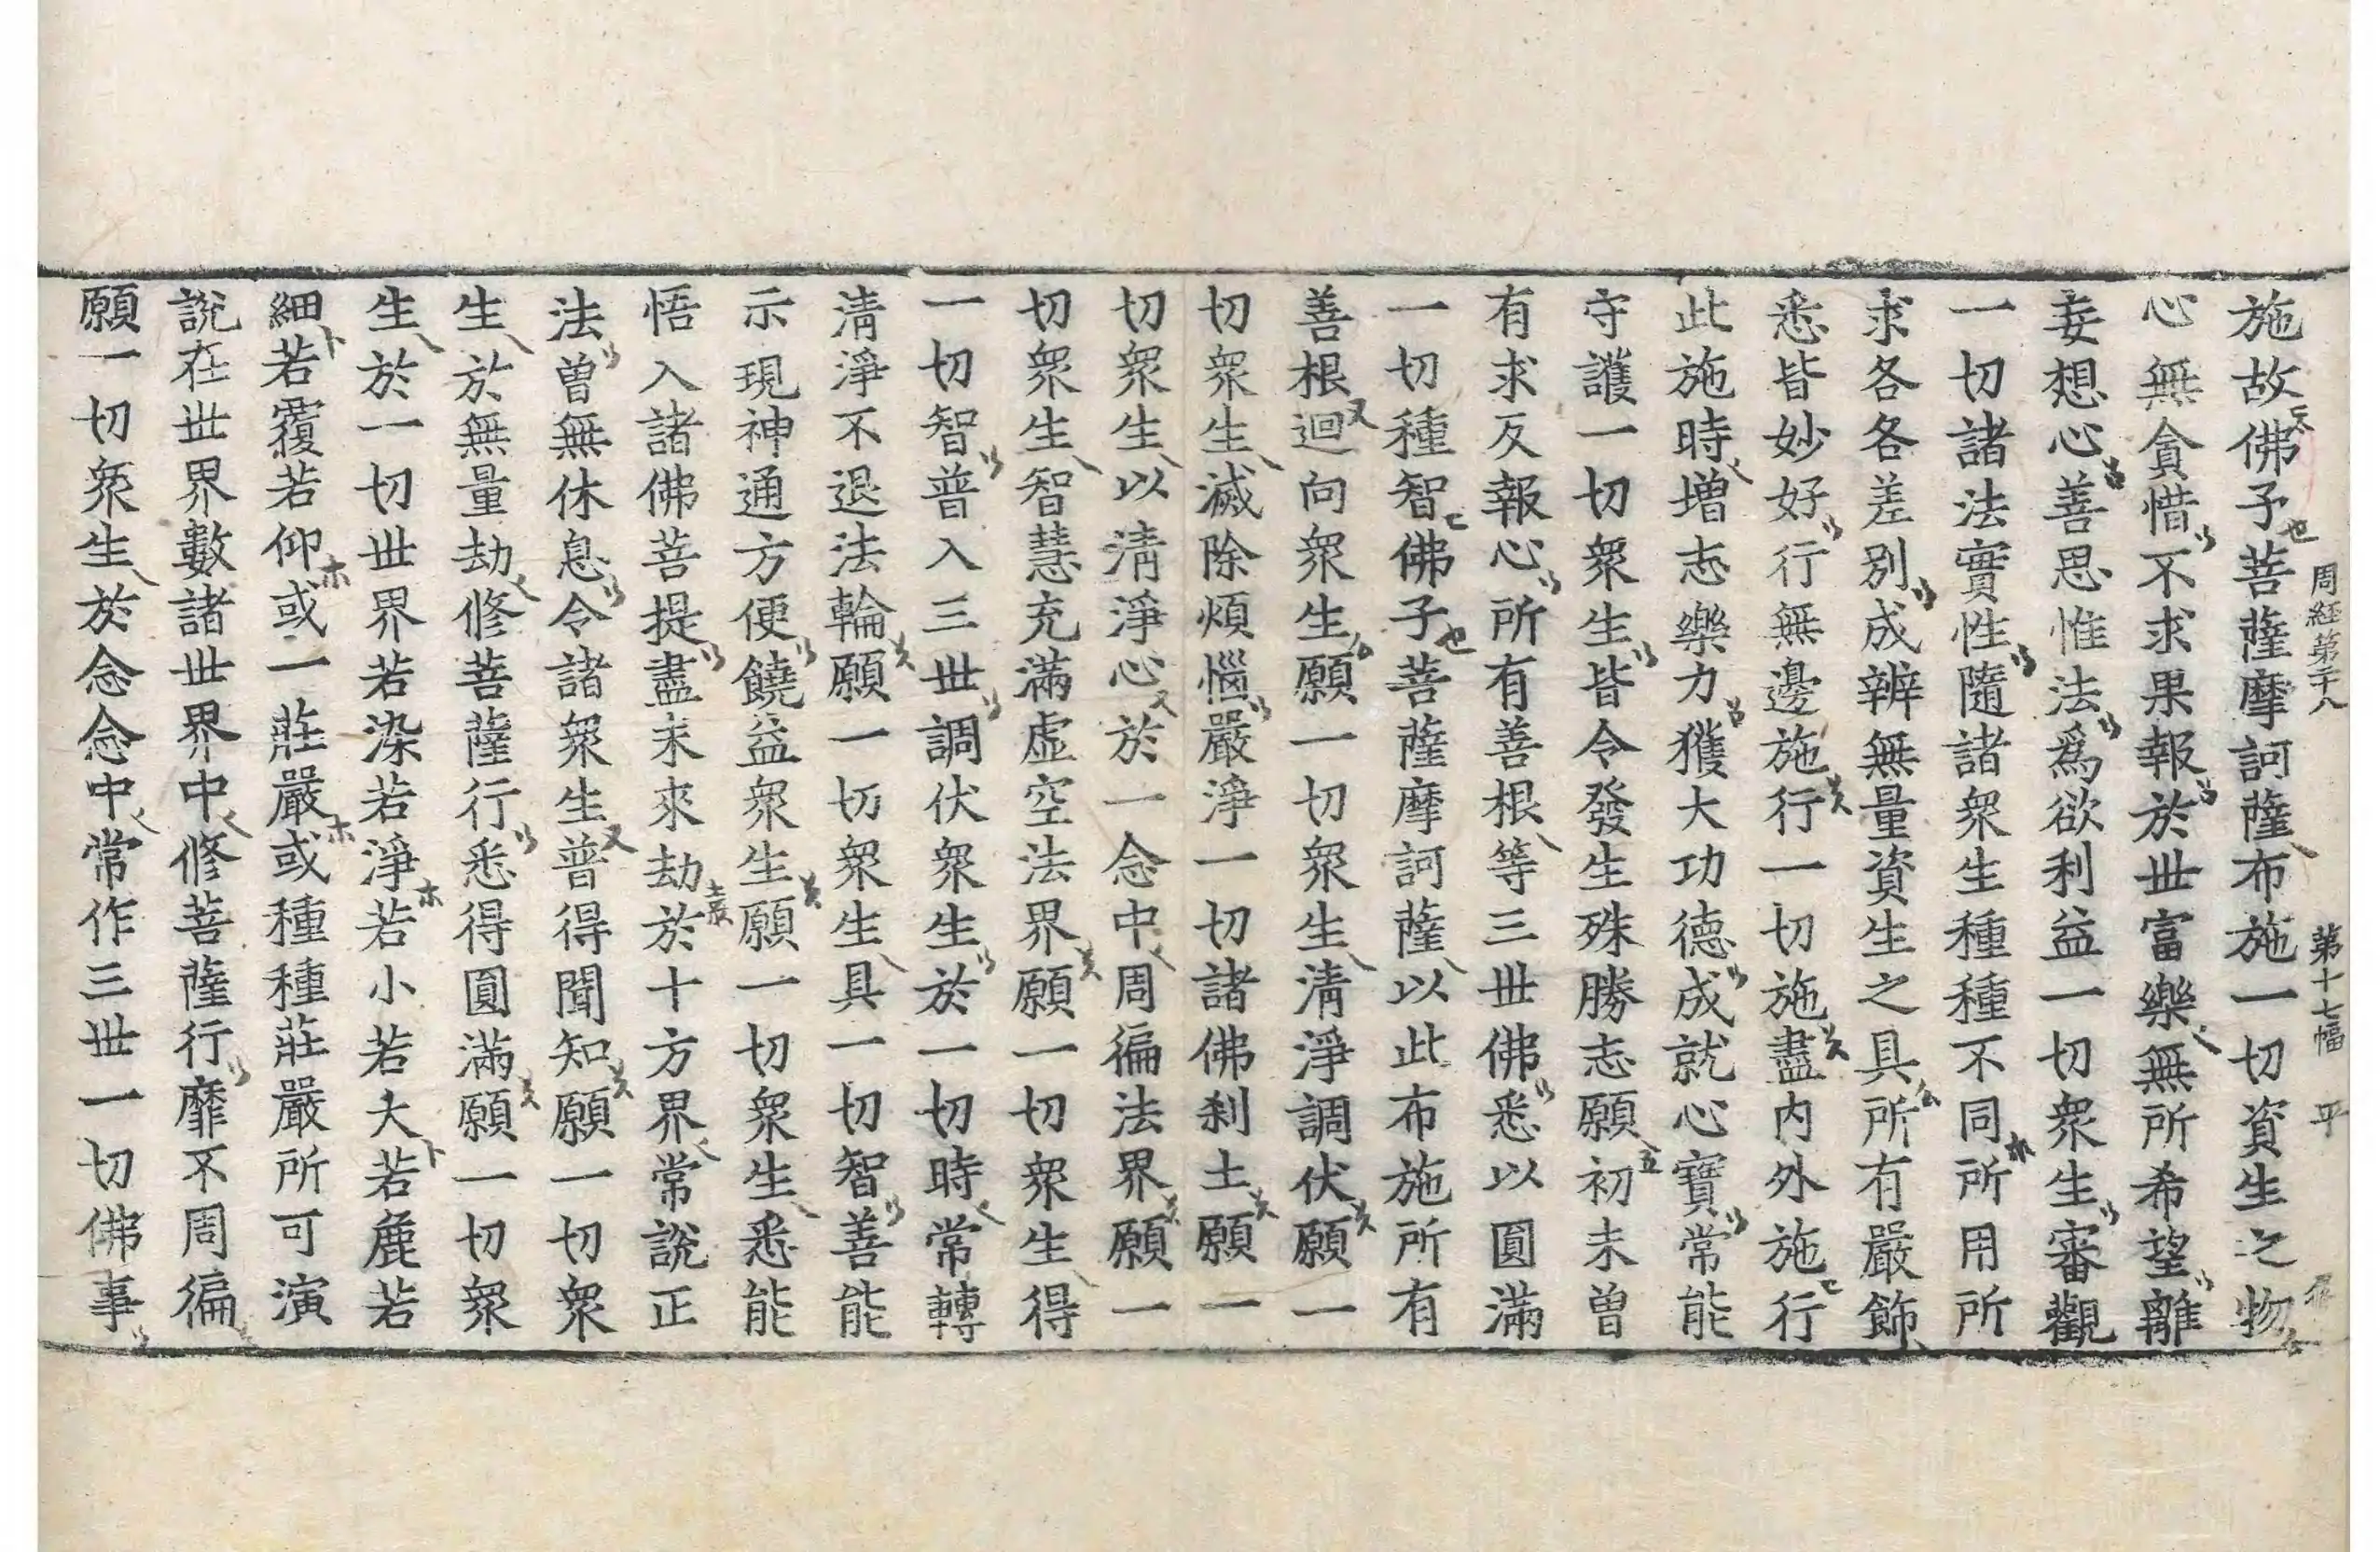 施故佛子菩薩摩訶薩布施一切資生之物
心無貪惜不求果報於世富樂無所希望離
妄想心善思惟法爲欲利益一切衆生審觀
一切諸法實性隨諸衆生種種不同所用所
求各各差別成辨無量資生之具所有嚴飾
悉皆妙好行無邊施行一切施盡内外施行
此施時増志樂力獲大功德成就心寶常能
守護一切衆生皆令發生殊勝志願初未曽
有求反報心所有善根等三世佛悉以圓滿
一切種智佛子菩薩摩訶薩以此布施所有
善根迴向衆生願一切衆生清淨調伏願一
切衆生滅除煩惱嚴淨一切諸佛刹土願一
切衆生以清淨心於一念中周徧法界願一
切衆生智慧充滿虚空法界願一切衆生得
一切智普入三世調伏衆生於一切時常轉
清淨不退法輪願一切衆生具一切智善能
示現神通方便饒益衆生願一切衆生悉能
悟入諸佛菩提盡未來劫於十方界常說正
法曽無休息令諸衆生普得聞知願一切衆
生於無量劫修菩薩行悉得圓滿願一切衆
生於一切世界若染若淨若小若大若麁若
細若覆若仰或一莊嚴或種種莊嚴所可演
說在世界數諸世界中修菩薩行靡不周徧
願一切衆生於念念中常作三世一切佛事
周経第二十八 第十七幅 平